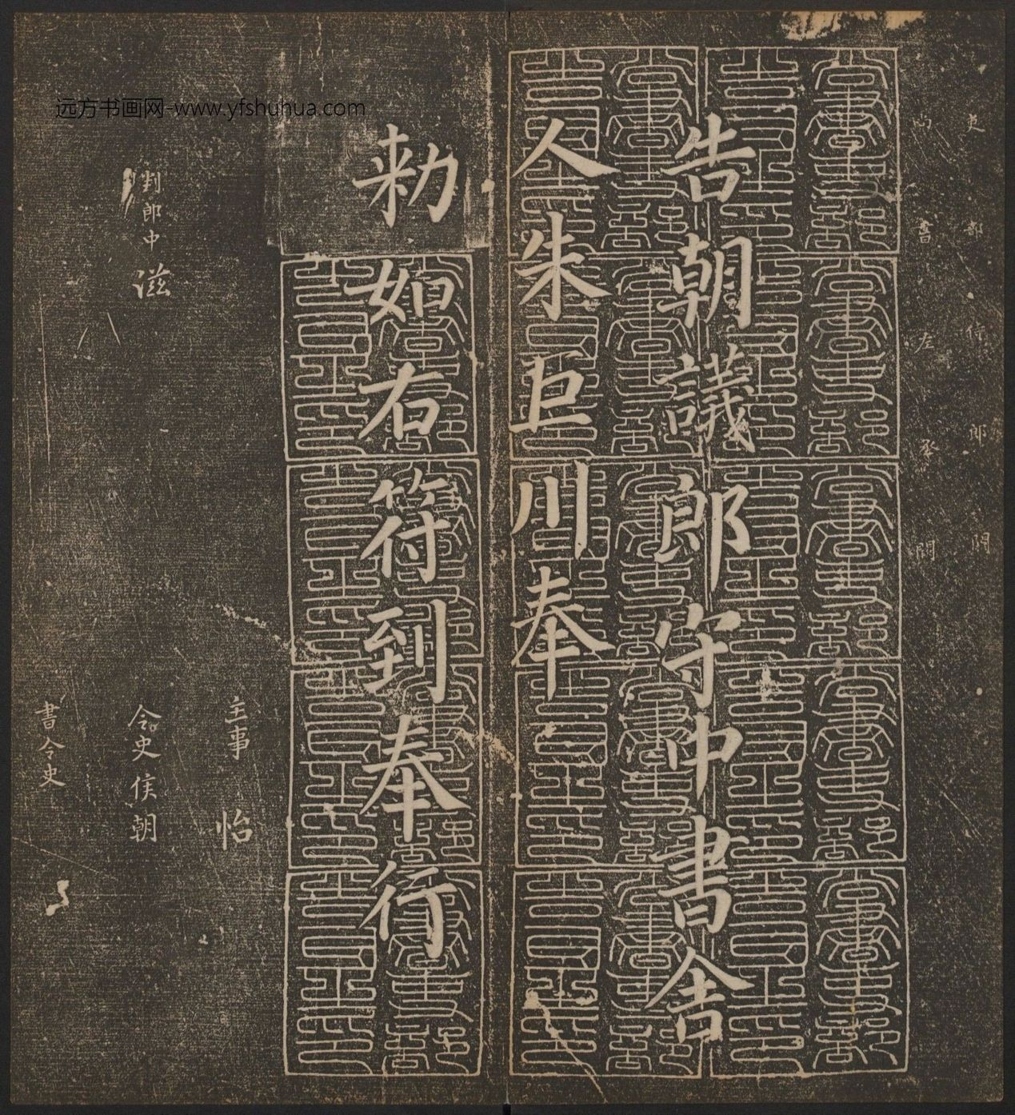 远方书画网-www.yfshuhua.com
吏部侍郎 闕
尚書左丞 闕
告朝議郎守中書舍
人朱巨川奉
勅如右符到奉行
主事 怡
判郎中 滋
令史 侯朝
書令史